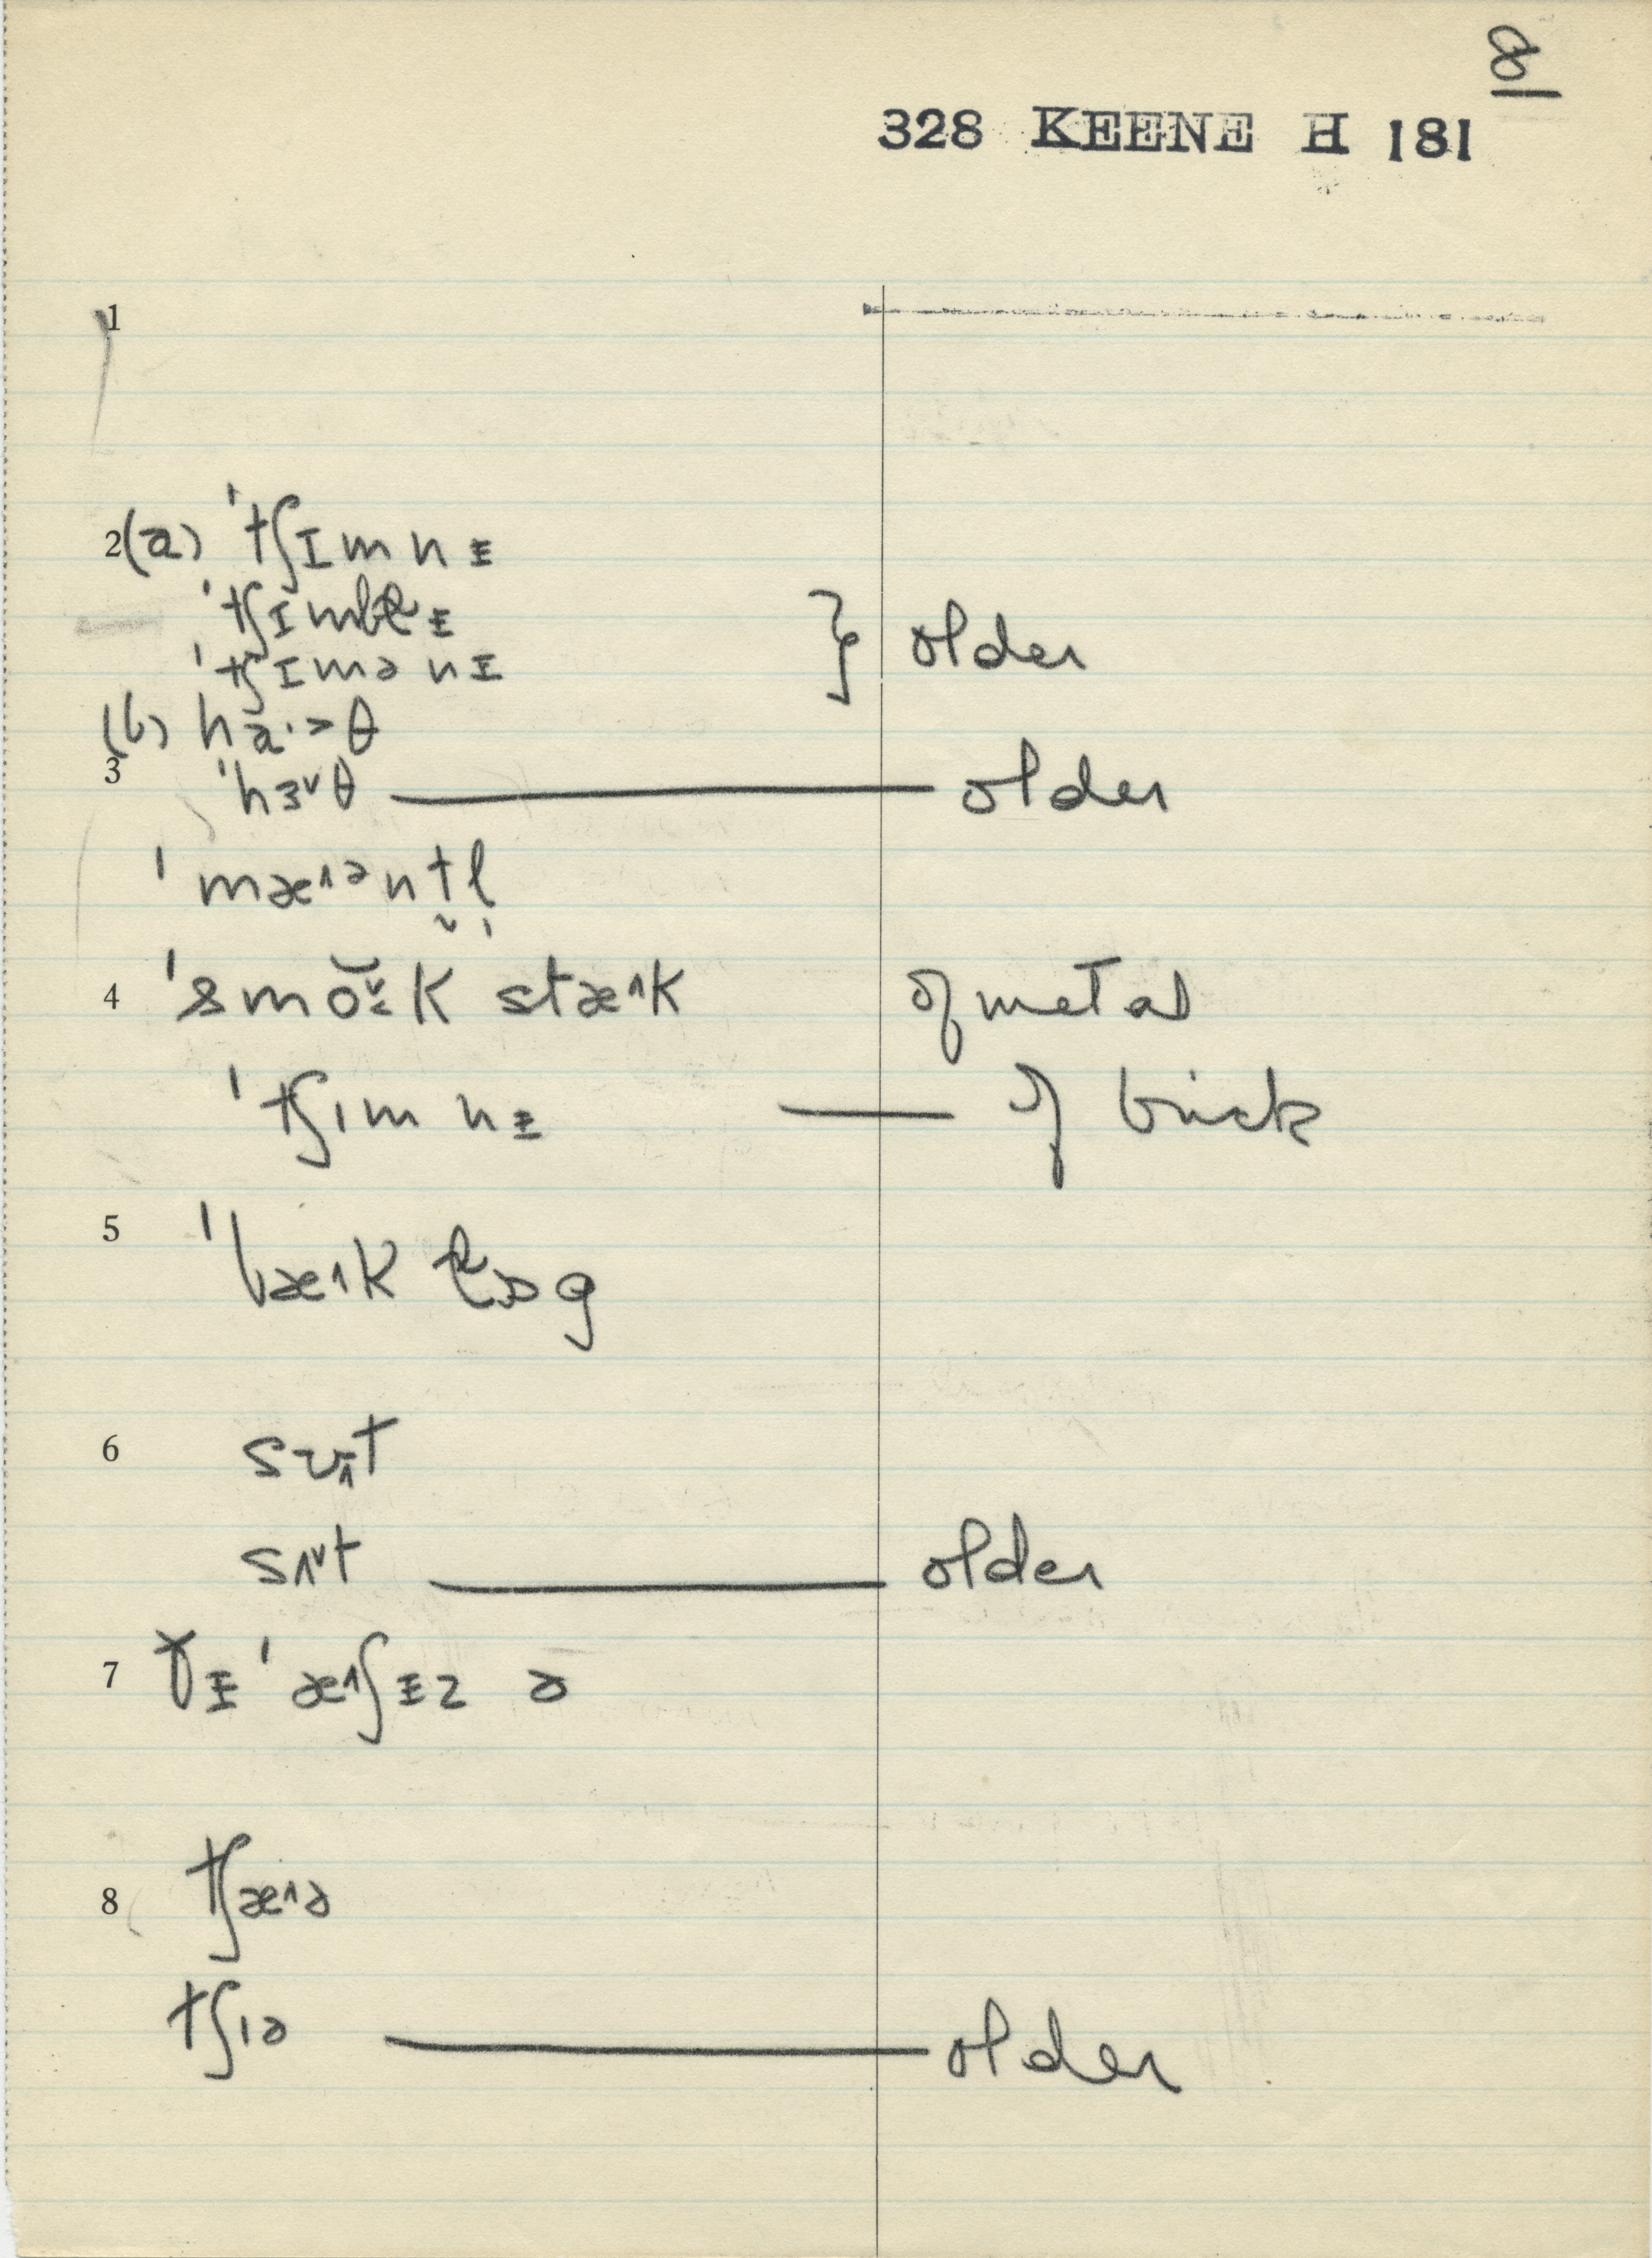 8
328 KEENE H 181
1
2(a) ˈtʃɪmnɪ
ˈtʃɪmblɪ
ˈtʃɪmənɪ } older
(b) ha·>θ
3 ˈhɜ˅θ — older
ˈmæ˄ənt̬l̩
4 ˈsmok stæ˄k of metal
ˈtʃɪmnɪ — of brick
5 ˈbæ˄k lɒg
6 sʊt
sʌ˅t — older
7 ðɪ ˈæ˄ʃɪz ə
8 tʃæ˄ə
tʃɪə — older